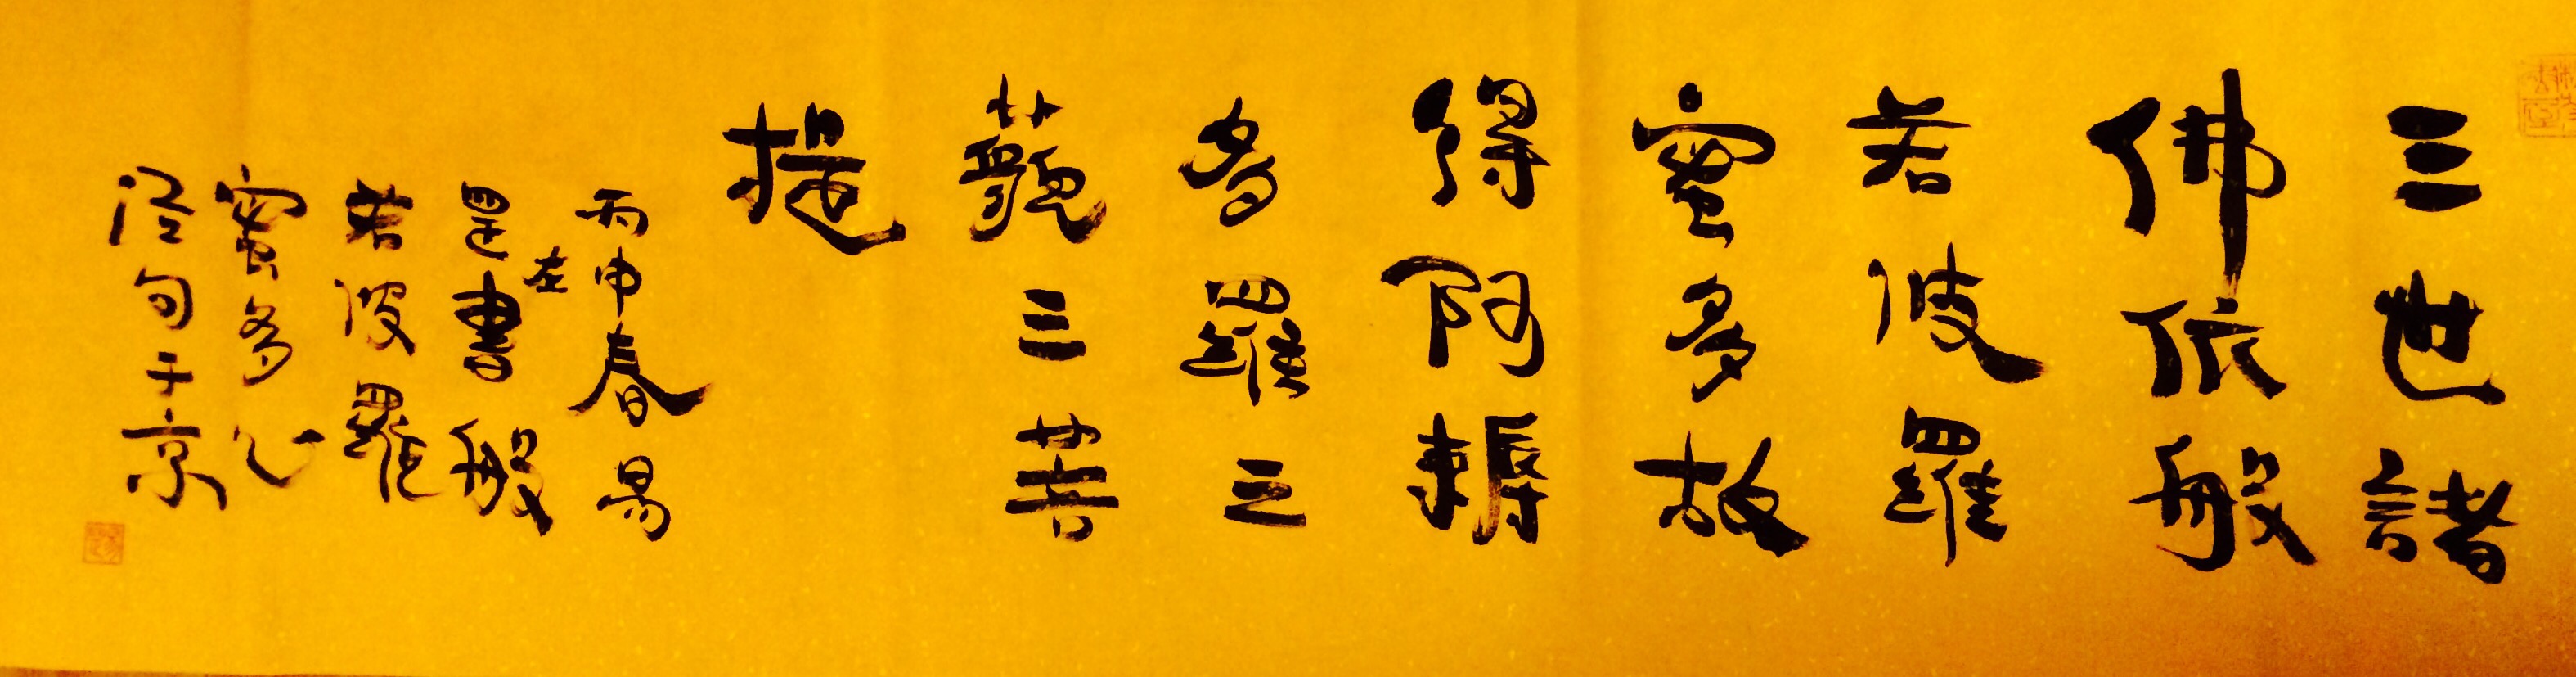 三世諸
佛依般
若波羅
蜜多故
得阿耨
多羅三
藐三菩
提
丙申春易
罡左書般
若波羅
蜜多心
经句于京